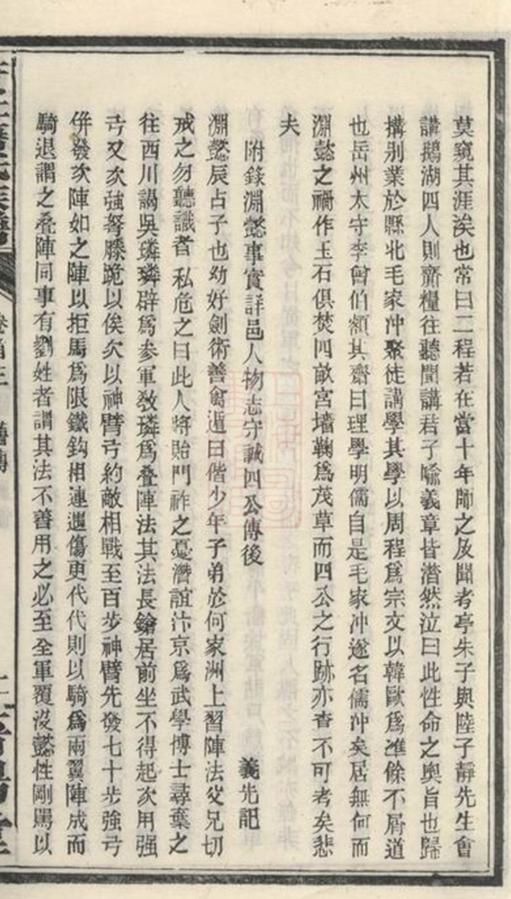 莫窺其涯涘也常曰二程若在當十年師之及聞考亭朱子與陸子靜先生會
講鵝湖四人則齋糧往聽聞講君子喻義章皆潸然泣曰此性命之奧旨也歸
搆別業於縣北毛家冲聚徒講學其學以周程爲宗文以韓歐爲準餘不屑道
也岳州太守李曾伯額其齋曰理學明儒自是毛家冲遂名儒冲矣居無何而
淵懿之禍作玉石俱焚四畝宮墻鞠爲茂草而四公之行跡亦杳不可考矣悲
夫
附錄淵懿事實詳邑人物志守誠四公傳後 義先記
淵懿辰占子也幼好劍術善奇遁日偕少年子弟於何家洲上習陣法父兄切
戒之勿聽識者私危之曰此人將貽門祚之憂潛詣汴京爲武學博士尋棄之
往西川謁吳璘璘辟爲參軍敎璘爲叠陣法其法長鎗居前坐不得起次用强
弓又次强弩膝跪以俟次以神臂弓約敵相戰至百步神臂先發七十步强弓
併發次陣如之陣以拒馬爲限鐵鈎相連遇傷更代代則以騎爲兩翼陣成而
騎退謂之叠陣同事有劉姓者謂其法不善用之必至全軍覆沒懿性剛罵以